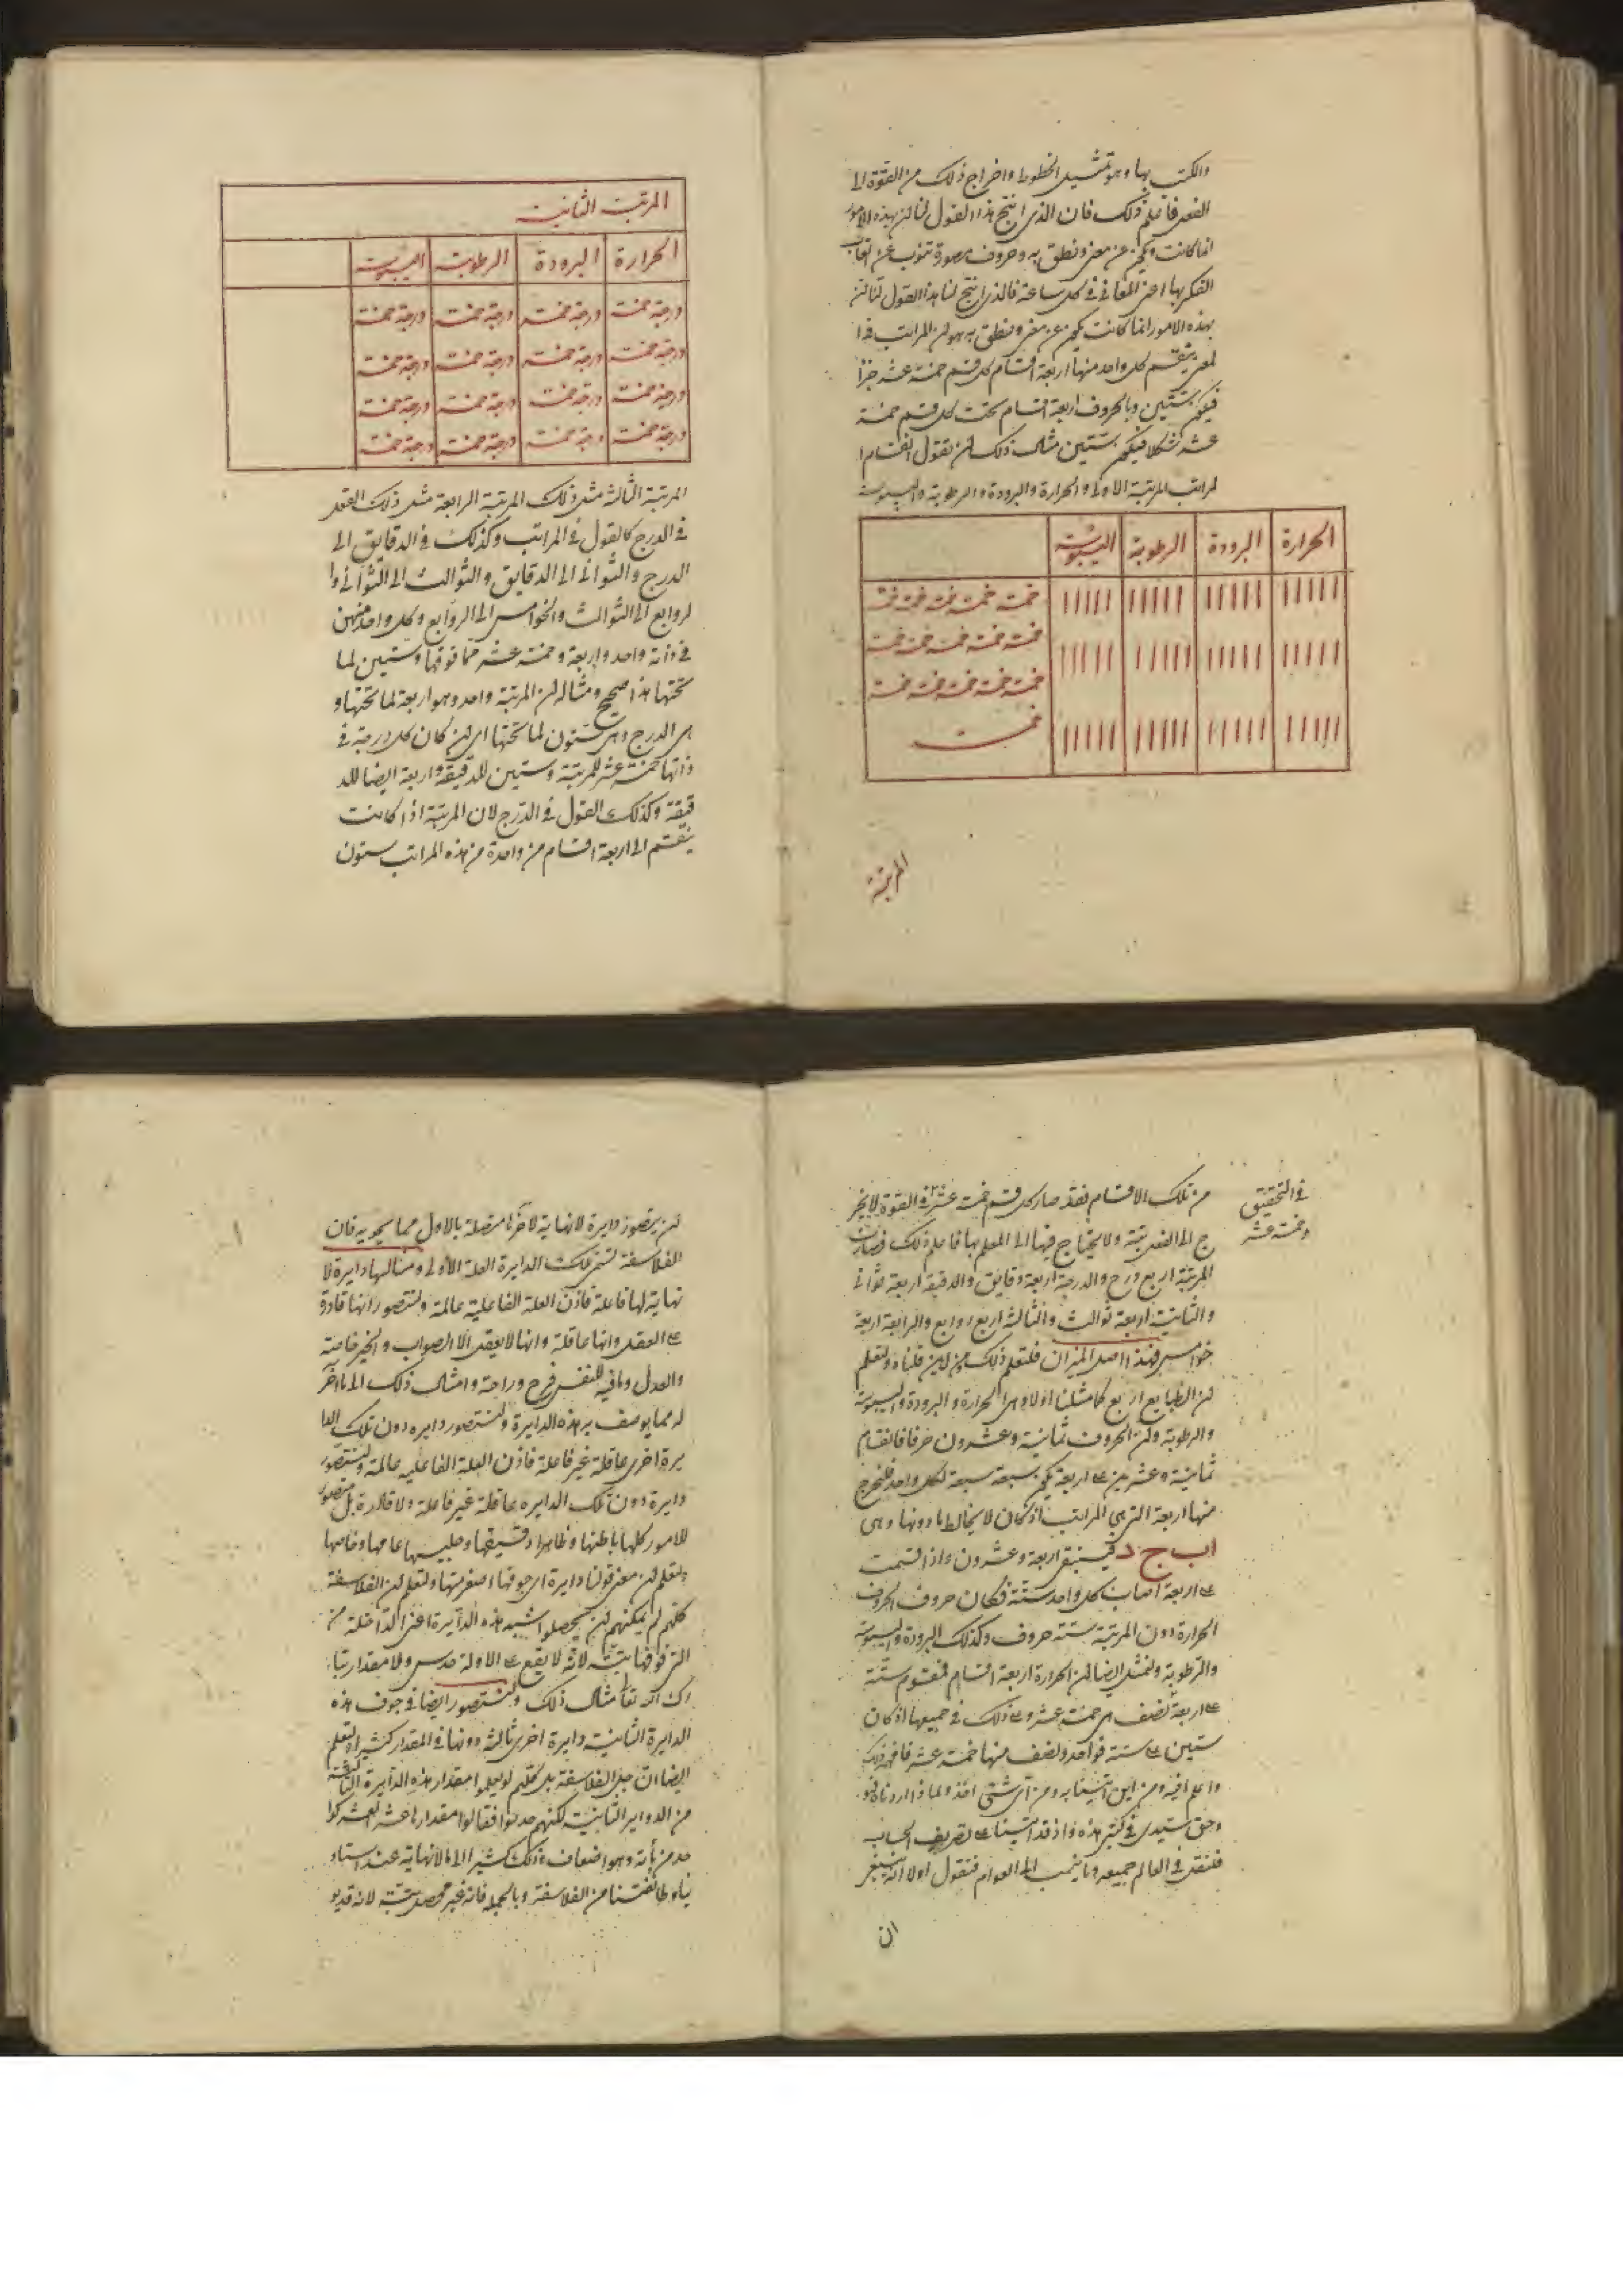 والكتب بها وهو تمثيل الخطوط واخراج ذلك من القوة الى
الفعل فاعلم ذلك فان الذى انتج هذا القول لنا لن بهذه الامور
انما كانت يكون عن معنى ونطق به وحروف بصورة تنوب عن
الفكر بها اعنى المعانى فى كل ساعة فالذى انتج لنا هذا القول لنا لن
بهذه الامور انما كانت يكون عن معنى ونطق به هو لن المراتب
ينقسم كل واحد منها اربعة اقسام كل قسم خمسة عشر جزأ
فيكون ستين وبالحروف اربعة اقسام تحت كل قسم خمسة
عشر شكلا فيكون ستين مثال ذلك لن نقول انقسام ا
لمراتب المرتبة الاولى والحرارة والبرودة والرطوبة واليبوسة
الحرارة البرودة الرطوبة اليبوسة
خمسة خمسة خمسة خمسة خمسة
خمسة خمسة خمسة خمسة خمسة
خمسة خمسة خمسة خمسة خمسة
خمسة
المرتبة
المرتبة الثانية
الحرارة البرودة الرطوبة اليبوسة
درجة خمسة درجة خمسة درجة خمسة درجة خمسة
درجة خمسة درجة خمسة درجة خمسة درجة خمسة
درجة خمسة درجة خمسة درجة خمسة درجة خمسة
درجة خمسة درجة خمسة درجة خمسة درجة خمسة
المرتبة الثالثة مثل ذلك المرتبة الرابعة مثل ذلك القول
فى الدرج كالقول فى المراتب وكذلك فى الدقايق الى
الدرج والثوانى الى الدقايق والثوالث الى الثوانى وا
لروابع الى الثوالث والخوامس الى الروابع وكل واحد منهن
فى ذاته واحد واربعة وخمسة عشر مما فوقها وستين لما
تحتها هذا صحيح ومثاله لن المرتبة واحد وهو اربعة لما تحتها و
هى الدرج وهى ستون لما تحتها اى لن كان كل درجة فى
ذاتها خمسة عشر للمرتبة وستين للدقيقة واربعة ايضا للد
قيقة وكذلك القول فى الدرج لان المرتبة اذا كانت
ينقسم الى اربعة اقسام من واحدة من هذه المراتب ستون
فى التحقيق
وخمسة عشر
من تلك الاقسام فقد صار كل قسم خمسة عشر فى القوة لايخر
ج الى الفعل بتة ولا يحتاج فيها الى العلم بها فاعلم ذلك فصارت
المرتبة اربع درج والدرجة اربعة دقايق والدقيقة اربعة ثوانى
والثانية اربعة ثوالث والثالثة اربع روابع والرابعة اربعة
خوامس فهذا اصل الميزان فلتعلم ذلك من اين قلناه ولتعلم
لن الطبايع اربع كما مثلنا اولا وهى الحرارة والبرودة واليبوسة
والرطوبة ولن الحروف ثمانية وعشرون حرفا فانقسام
ثمانية وعشرين على اربعة يكون سبعة سبعة لكل واحد فلنخرج
منها اربعة التى هى المراتب اذ كان لا يخالط ما دونها وهى
ا ب ج د فيبقى اربعة وعشرون واذا قسمت
على اربعة اصاب كل واحد ستة فكان حروف الحروف
الحرارة دون المرتبة ستة حروف وكذلك البرودة واليبوسة
والرطوبة ولنمثل ايضا لن الحرارة اربعة اقسام فمقسوم ستة
على اربعة نصف هى خمسة عشر وعلى ذلك فى جميعها اذ كان
ستين على ستة فواحد ونصف منها خمسة عشر فافهم ذلك
واعلم فيه ومن اين اتينا به ومن اى شئ اخذ ولماذا اردناه فو
وحق سيدى فى كتبى هذه واذ قد اتينا على تصريف الحساب
فلنقل فى العالم جميعه وما ينسب الى العوام فنقول اولا انه ينبغى
ان
لن يتصور دايرة لا نهاية لاخرها متصلة بالاول مما يحويه فان
الفلاسفة تسمى تلك الدايرة العلة الاولى ومثالها دايرة لا
نهاية لها فاعلة فاذن العلة الفاعلية عالمة ولنتصور انها قادرة
على العقل وانها عاقلة وانها لا يعقل الا الصواب والخير خاصة
والعدل وما فيه للنفس فرح وراحة وامثال ذلك الى ما اخر
له مما يوصف به هذه الدايرة ولنتصور دايره دون تلك الدا
يرة اخرى عاقلة غير فاعلة فاذن العلة الفاعليه عالمة ولنتصور
دايرة دون تلك الدايره عاقلة غير فاعلة ولا قادرة بل متصور
للامور كلها باطنها وظاهرها دقيقها وجليلها عامها وخاصها
ولتعلم لن معنى قولنا دايرة اى جوفها اصغر منها ولتعلم لن الفلاسفة
كلهم لم يمكنهم لن يحصلوا شبه هذه الدايرة اعنى الداخلة من
التى فوقها بتة لانه لا يقع على الاولة حدس ولا مقدار تبا
رك الله تعا مثال ذلك ولنتصور ايضا فى جوف هذه
الدايرة الثانية دايرة اخرى ثالثة دونها فى المقدار كثيرا ولتعلم
ايضا ان جل الفلاسفة بل كلهم لم يعلموا مقدار هذه الدايرة الثالثة
من الدواير الثانية لكنهم حدسوا فقالوا مقدارها عشر العشر كوا
حد من مأية وهو اضعاف ذلك كثيرا الى ما لا نهاية عند استاد
ينا وطائفتنا من الفلاسفة وبالجملة فانه غير محصل بتة لانه قديو